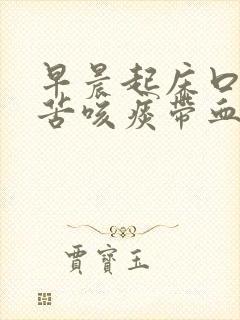 早晨起床口
苦咳痰带血
賈寶玉